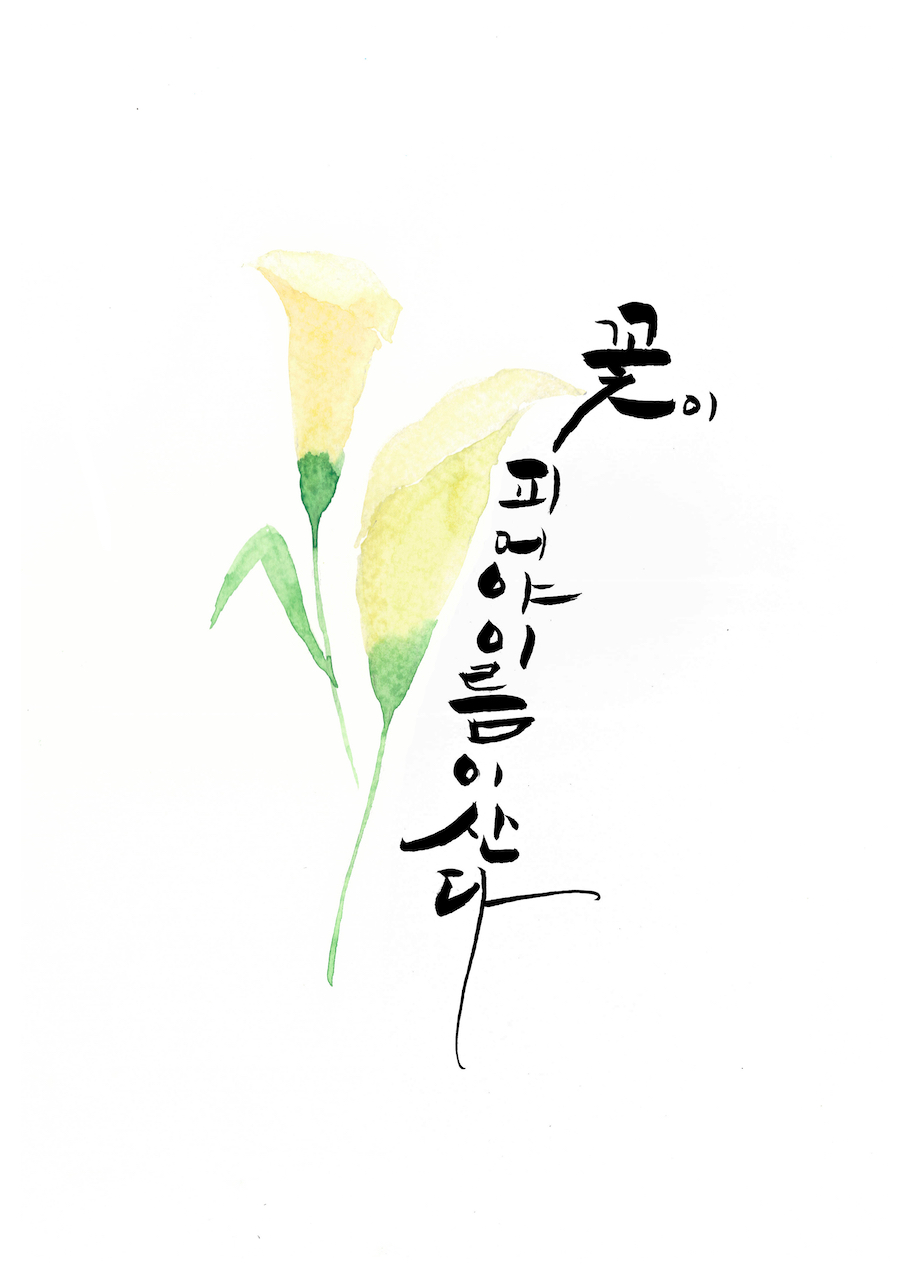 꽃이
피어야
이름이
산다